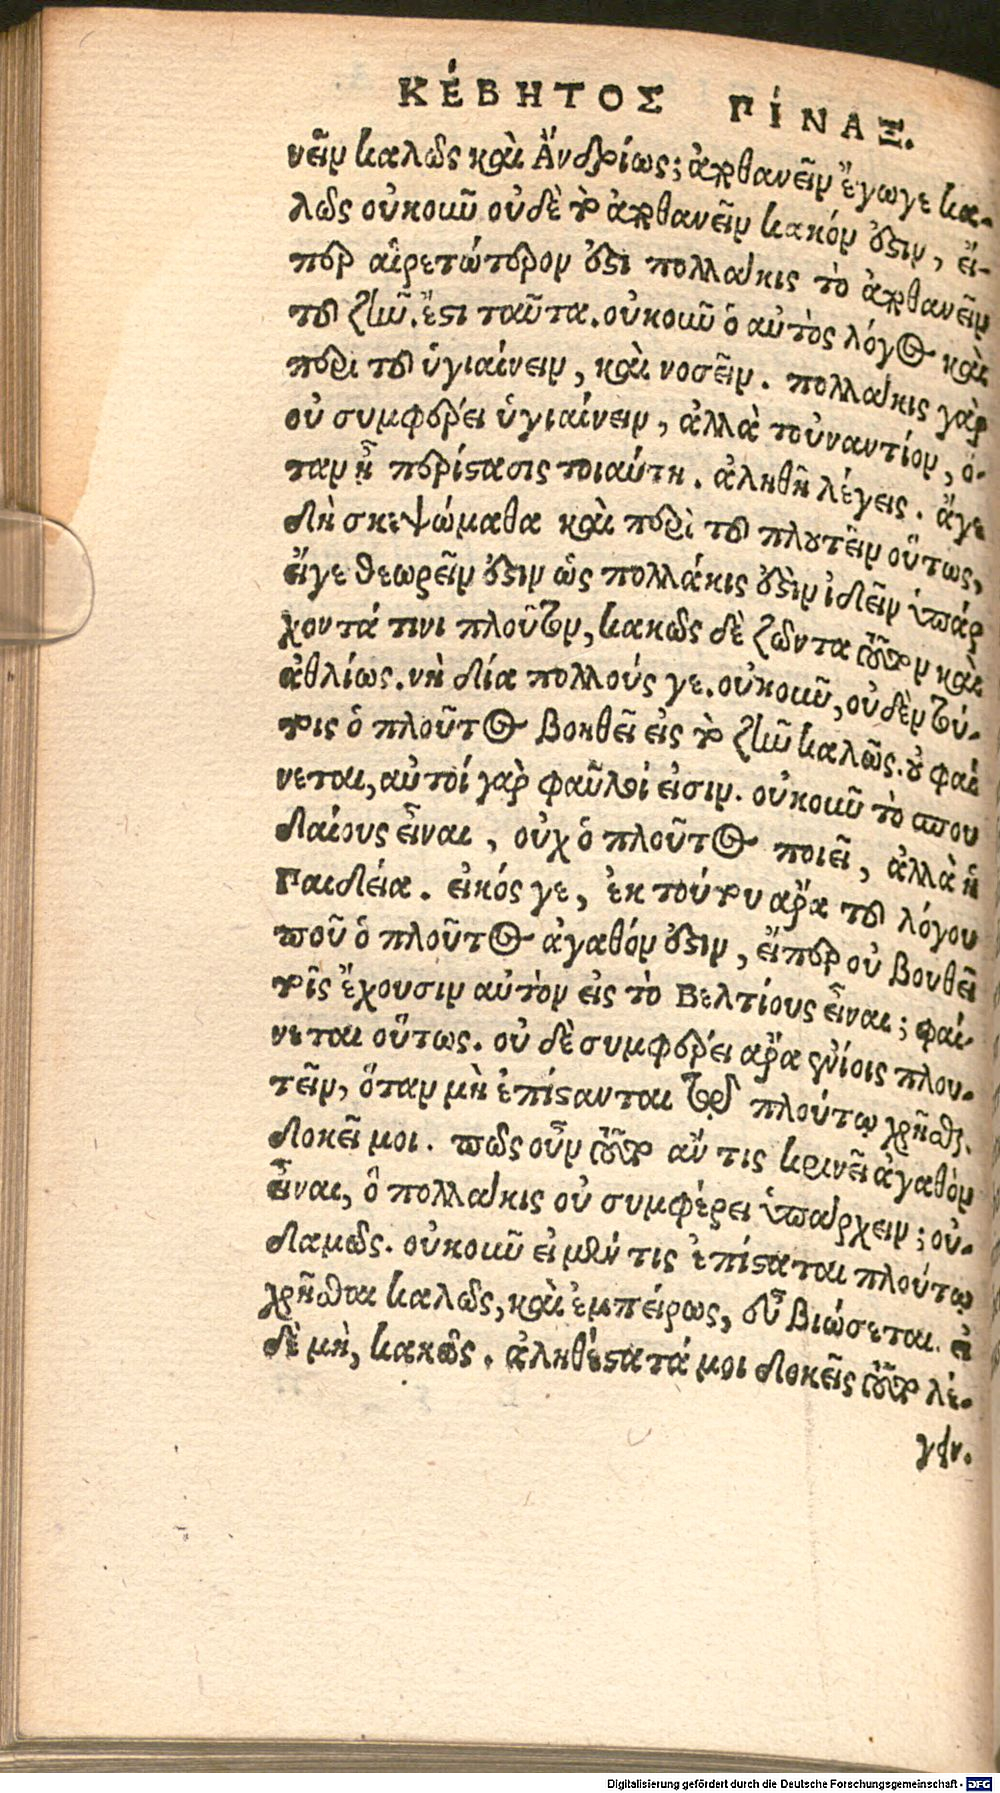 ΚΈΒΗΤΟΣ ΠΊΝΑΞ.
νεῖν καλῶς καὶ Ἀνδρίως; ἀποθανεῖν ἔγωγε κα-
λῶς οὐκοιοῦ οὐδὲ τὸ ἀποθανεῖν κακόν ὅστιν, εἴ-
περ αἱρετώτερον ὅστι πολλάκις τὸ ἀποθανεῖν
τοῦ ζῆν. ἔστι ταῦτα. οὐκοιοῦ ὁ αὐτὸς λόγος καὶ
περὶ τοῦ ὑγιαίνειν, καὶ νοσεῖν. πολλάκις γὰρ
οὐ συμφέρει ὑγιαίνειν, ἀλλὰ τοὐναντίον, ὅ-
ταν ᾖ περίστασις τοιαύτη. ἀληθῆ λέγεις. ἄγε
δὴ σκεψώμαθα καὶ περὶ τοῦ πλουτεῖν οὕτως,
εἴγε θεωρεῖν ὅστιν ὡς πολλάκις ὅστὶν ἰδεῖν ὑπάρ
χοντά τινι πλοῦτον, κακῶς δὲ ζῶντα τοῦτον καὶ
ἀθλίως. νὴ δία πολλούς γε. οὐκοιοῦ, οὐδὲν τού-
τοις ὁ πλοῦτος βοηθεῖ εἰς τὸ ζῆν καλῶς. οὐ φαί
νεται, αὐτοί γὰρ φαῦλοί εἰσιν. οὐκοιοῦ τὸ σπου
δαίους εἶναι, οὐχ ὁ πλοῦτος ποιεῖ, ἀλλὰ ἡ
Παιδεία. εἰκός γε, ἐκ τούτου ἄρα τοῦ λόγου
ποῦ ὁ πλοῦτος ἀγαθόν ὅστιν, εἴπερ οὐ βουθεῖ
τοῖς ἔχουσιν αὐτὸν εἰς τὸ Βελτίους εἶναι; φαί-
νεται οὕτως. οὐ δὲ συμφέρει ἄρα ἐνίοις πλου-
τεῖν, ὅταν μὴ ἐπίστανται τῷ πλούτῳ χρῆσθαι.
δοκεῖ μοι. πῶς οὖν τοῦτο ἄν τις κρινεῖ ἀγαθὸν
εἶναι, ὃ πολλάκις οὐ συμφέρει ὑπάρχειν; οὐ-
δαμῶς. οὐκοιοῦ εἰ μέν τις ἐπίσταται πλούτῳ
χρῆσθαι καλῶς, καὶ ἐμπείρως, εὖ βιώσεται. εἰ
δὲ μὴ, κακῶς. ἀληθέστατά μοι δοκεῖς τοῦτο λέ-
γειν.
Digitalisierung gefördert durch die Deutsche Forschungsgemeinschaft - DFG